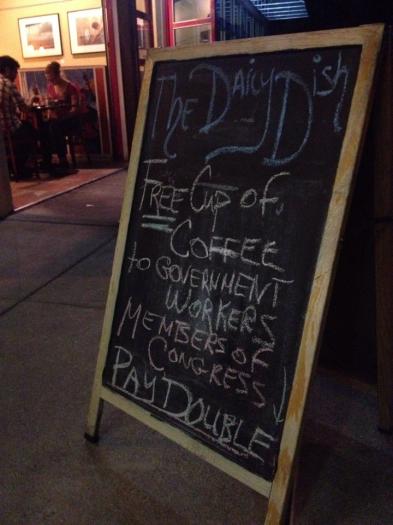 The Daily Dish
FREE Cup of
COFFEE
to GOVERNMENT
WORKERS
MEMBERS OF
CONGRESS
PAY DOUBLE